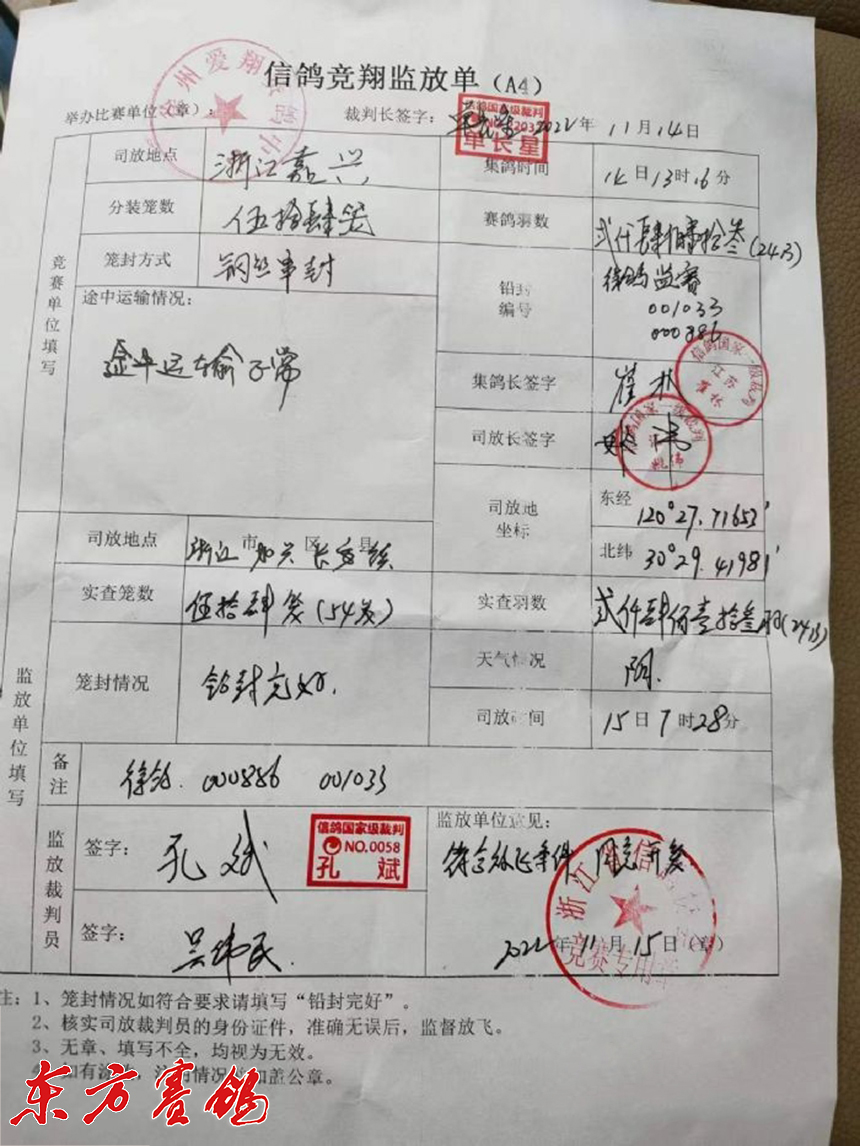 信鸽竞翔监放单（A4）
举办比赛单位（章）： 裁判长签字： 2022年11月14日
信鸽国家级裁判
单长星
司放地点 浙江嘉兴 集鸽时间 14日13时16分
分装笼数 伍拾肆笼 赛鸽羽数 弍仟肆佰壹拾叁(2413)
笼封方式 钢丝串封 铅封编号 信鸽监督
001033
000886
竞赛单位填写
途中运输情况：
途中运输正常
集鸽长签字 崔林
信鸽国家一级裁判
江苏
崔林
司放长签字
信鸽国家一级裁判
司放地坐标 东经 120°27.71653'
北纬 30°29.41981'
司放地点 浙江市嘉兴区长安镇县
实查笼数 伍拾肆笼(54笼) 实查羽数 弍仟肆佰壹拾叁羽(2413)
笼封情况 铅封完好. 天气情况 阴.
司放时间 15日7时28分
监放单位填写
备注 000886 001033
监放裁判员
签字： 孔斌
信鸽国家级裁判
NO.0058
孔斌
签字： 吴伟民
监放单位意见：
符合放飞条件 同意开笼
2022年11月15日（章）
竞赛专用章
注：1、笼封情况如符合要求请填写“铅封完好”。
2、核实司放裁判员的身份证件，准确无误后，监督放飞。
3、无章、填写不全，均视为无效。
4、如有涂改，注明情况并加盖公章。
东方赛鸽